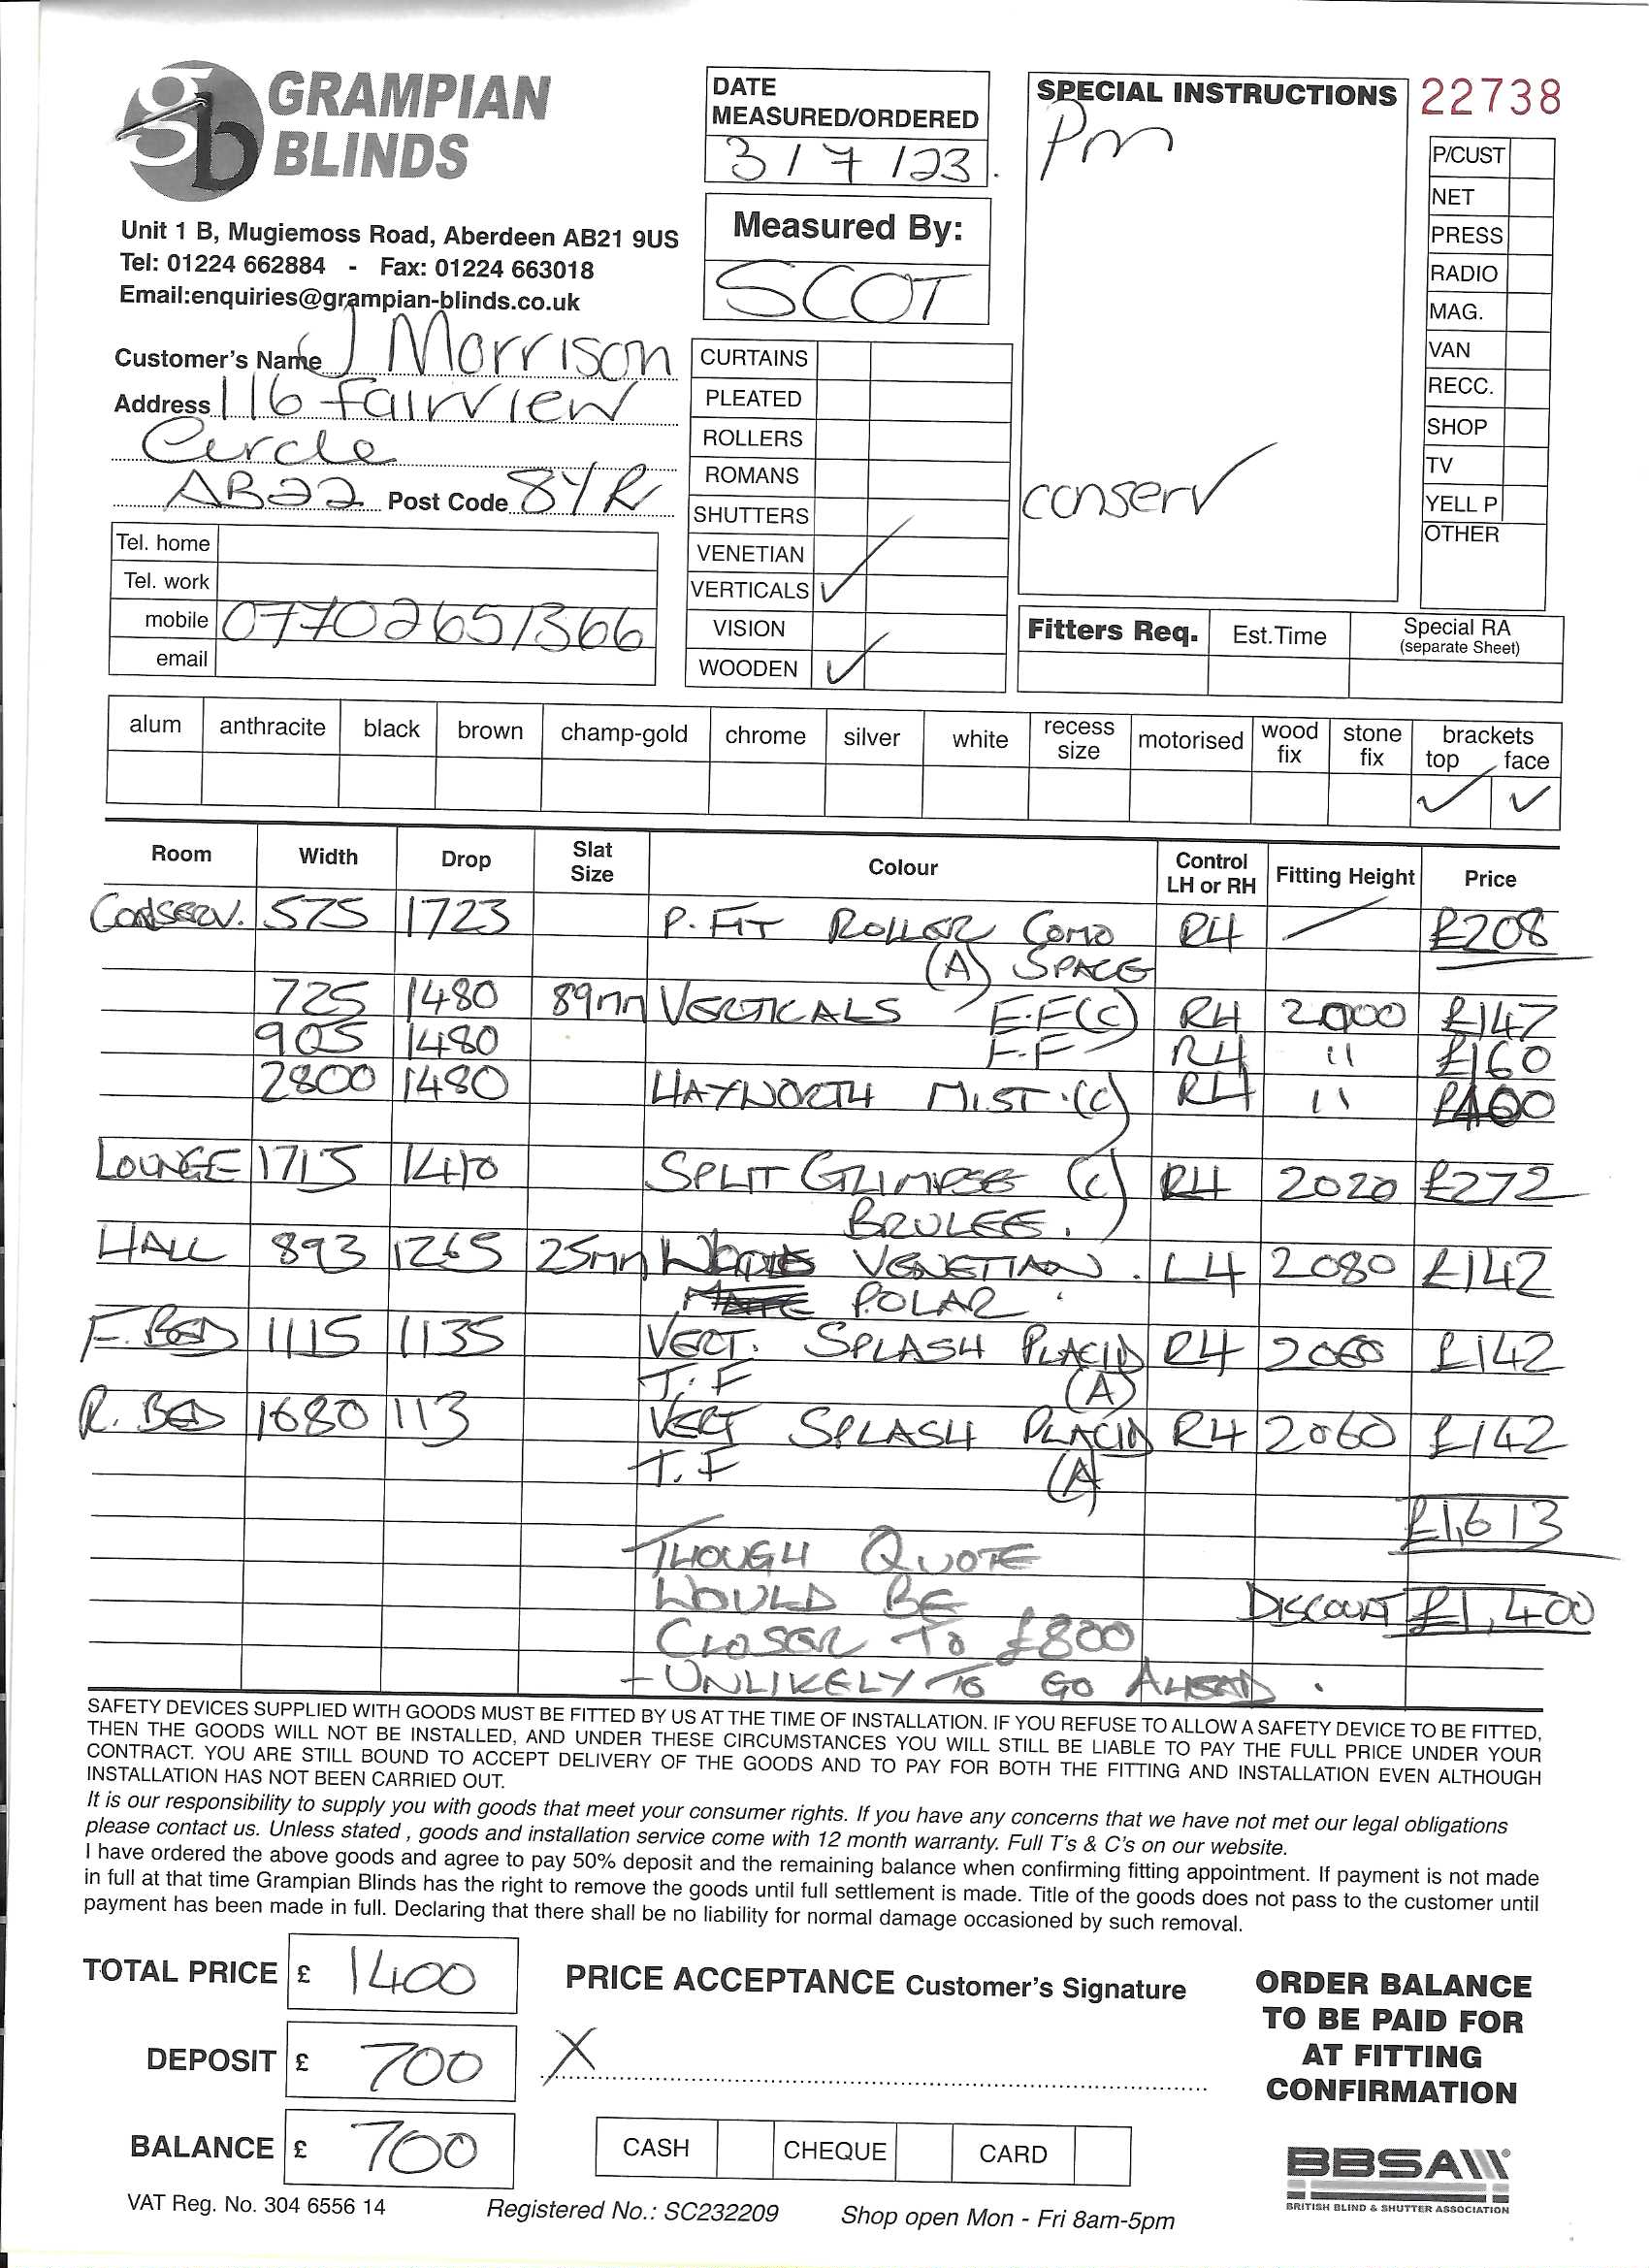 GRAMPIAN
BLINDS
Unit 1 B, Mugiemoss Road, Aberdeen AB21 9US
Tel: 01224 662884 - Fax: 01224 663018
Email:enquiries@grampian-blinds.co.uk
DATE
MEASURED/ORDERED
3 / 7 / 23.
Measured By:
SCOT
SPECIAL INSTRUCTIONS
Pm
conserv
22738
P/CUST
NET
PRESS
RADIO
MAG.
VAN
RECC.
SHOP
TV
YELL P
OTHER
Customer's Name J Morrison
Address 116 Fairview
Circle
AB22 Post Code 8YR
Tel. home
Tel. work
mobile 07702651366
email
CURTAINS
PLEATED
ROLLERS
ROMANS
SHUTTERS
VENETIAN
VERTICALS ✓
VISION
WOODEN ✓
Fitters Req. Est.Time Special RA
(separate Sheet)
alum anthracite black brown champ-gold chrome silver white recess size motorised wood fix stone fix brackets top face
✓ ✓
Room Width Drop Slat Size Colour Control LH or RH Fitting Height Price
CONSERV. 575 1723 P. FIT ROLLER COMO RH / £208
(A) SPACE
725 1480 89mm VERTICALS F.F(C) RH 2000 £147
905 1480 F.F RH 11 £160
2800 1480 HAYWORTH MIST.(C) RH 11 £400
LOUNGE 1715 1410 SPLIT GLIMPSE (C) RH 2020 £272
BRULEE.
HALL 893 1265 25mm VENETIAN. LH 2080 £142
POLAR
F. BED 1115 1135 VERT. SPLASH PLACID RH 2060 £142
T.F (A)
R. BED 1680 113 VERT SPLASH PLACID RH 2060 £142
T.F (A)
£1,613
THOUGH QUOTE
WOULD BE DISCOUNT £1,400
CLOSER TO £800
- UNLIKELY TO GO AHEAD.
SAFETY DEVICES SUPPLIED WITH GOODS MUST BE FITTED BY US AT THE TIME OF INSTALLATION. IF YOU REFUSE TO ALLOW A SAFETY DEVICE TO BE FITTED,
THEN THE GOODS WILL NOT BE INSTALLED, AND UNDER THESE CIRCUMSTANCES YOU WILL STILL BE LIABLE TO PAY THE FULL PRICE UNDER YOUR
CONTRACT. YOU ARE STILL BOUND TO ACCEPT DELIVERY OF THE GOODS AND TO PAY FOR BOTH THE FITTING AND INSTALLATION EVEN ALTHOUGH
INSTALLATION HAS NOT BEEN CARRIED OUT.
It is our responsibility to supply you with goods that meet your consumer rights. If you have any concerns that we have not met our legal obligations
please contact us. Unless stated , goods and installation service come with 12 month warranty. Full T's & C's on our website.
I have ordered the above goods and agree to pay 50% deposit and the remaining balance when confirming fitting appointment. If payment is not made
in full at that time Grampian Blinds has the right to remove the goods until full settlement is made. Title of the goods does not pass to the customer until
payment has been made in full. Declaring that there shall be no liability for normal damage occasioned by such removal.
TOTAL PRICE £ 1400
DEPOSIT £ 700
BALANCE £ 700
PRICE ACCEPTANCE Customer's Signature
X
CASH CHEQUE CARD
ORDER BALANCE
TO BE PAID FOR
AT FITTING
CONFIRMATION
BBSA
BRITISH BLIND & SHUTTER ASSOCIATION
VAT Reg. No. 304 6556 14 Registered No.: SC232209 Shop open Mon - Fri 8am-5pm